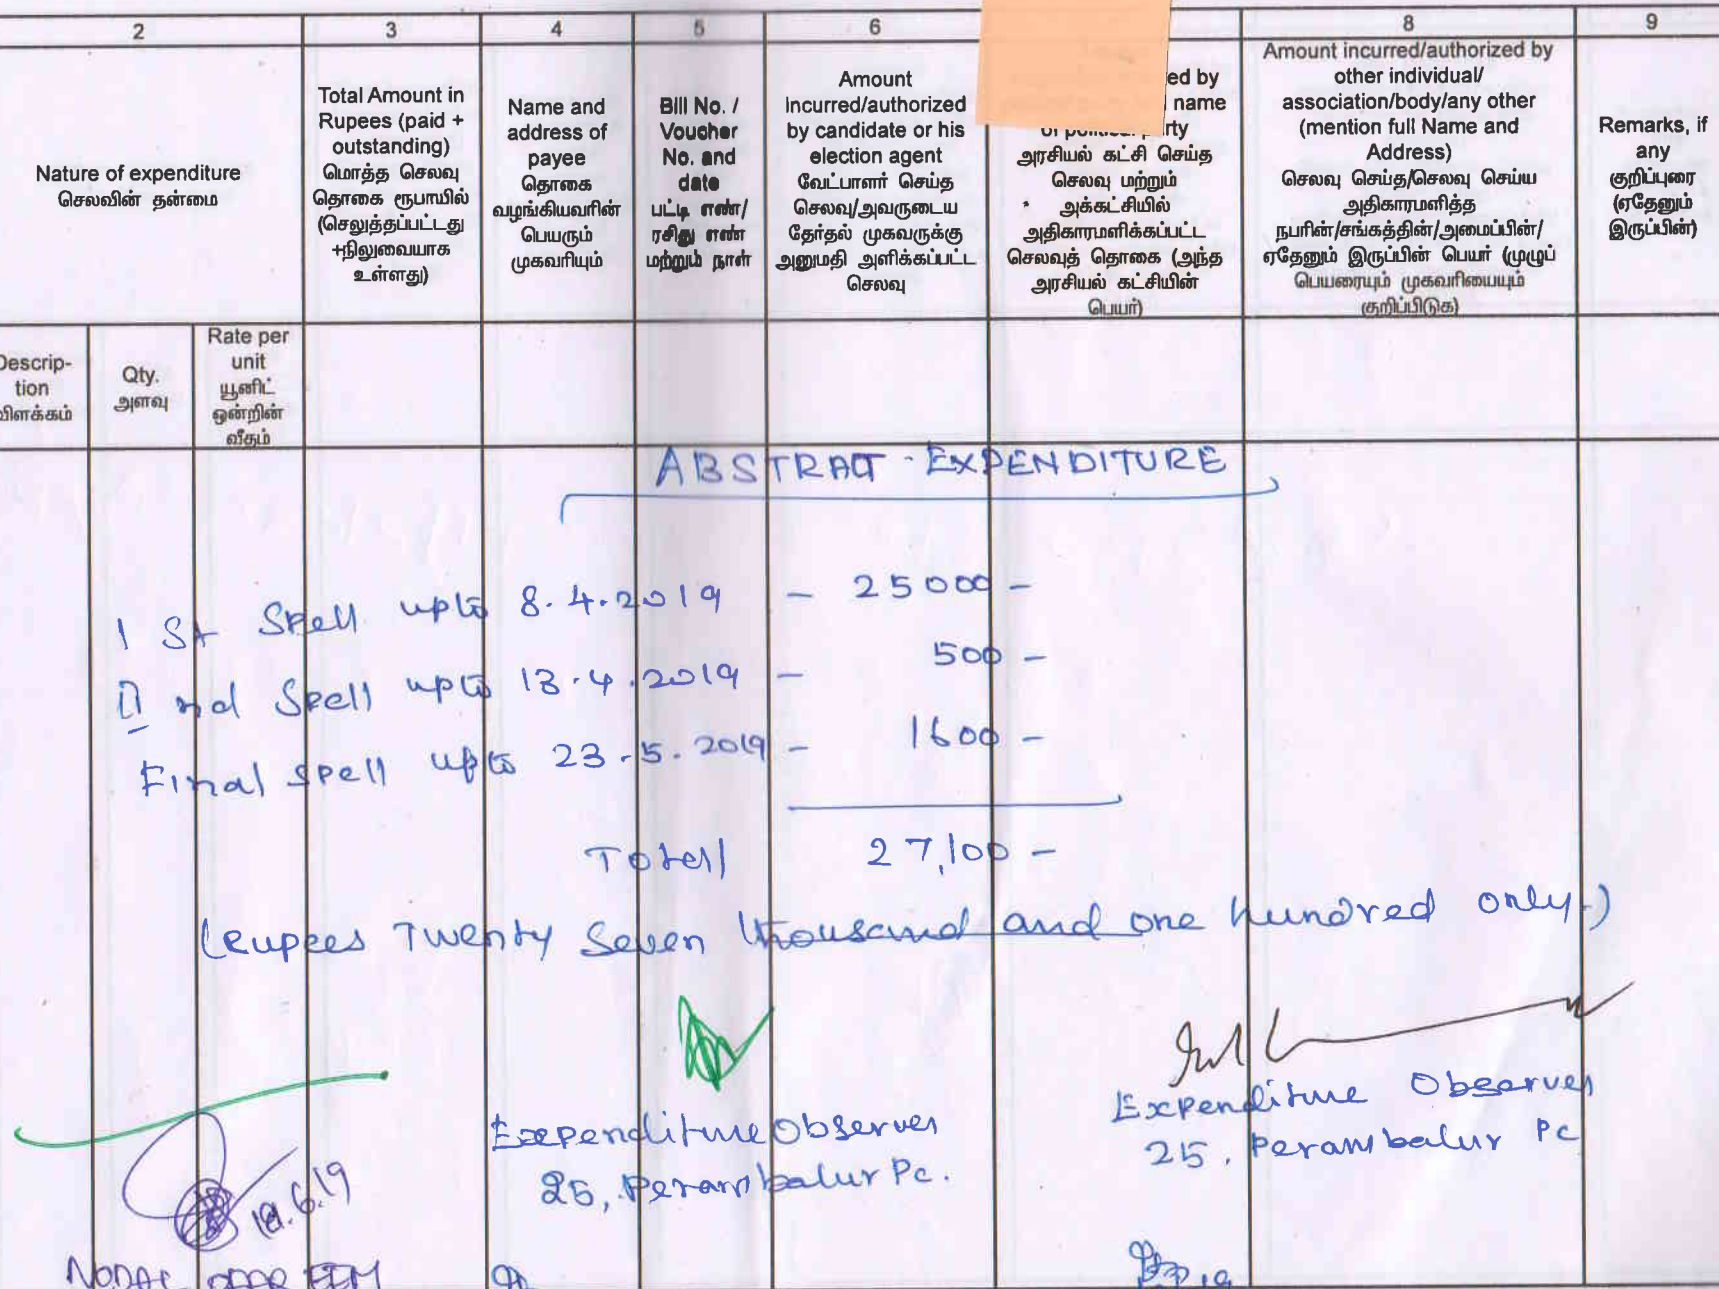 2
3
4
5
6
8
9
Nature of expenditure
செலவின் தன்மை
Total Amount in
Rupees (paid +
outstanding)
மொத்த செலவு
தொகை ரூபாயில்
(செலுத்தப்பட்டது
+நிலுவையாக
உள்ளது)
Name and
address of
payee
தொகை
வழங்கியவரின்
பெயரும்
முகவரியும்
Bill No. /
Voucher
No. and
date
பட்டி எண்/
ரசிது எண்
மற்றும் நாள்
Amount
incurred/authorized
by candidate or his
election agent
வேட்பாளர் செய்த
செலவு/அவருடைய
தேர்தல் முகவருக்கு
அனுமதி அளிக்கப்பட்ட
செலவு
ed by
name
of political party
அரசியல் கட்சி செய்த
செலவு மற்றும்
அக்கட்சியில்
அதிகாரமளிக்கப்பட்ட
செலவுத் தொகை (அந்த
அரசியல் கட்சியின்
பெயர்)
Amount incurred/authorized by
other individual/
association/body/any other
(mention full Name and
Address)
செலவு செய்த/செலவு செய்ய
அதிகாரமளித்த
நபரின்/சங்கத்தின்/அமைப்பின்/
ஏதேனும் இருப்பின் பெயர் (முழுப்
பெயரையும் முகவரியையும்
குறிப்பிடுக)
Remarks, if
any
குறிப்புரை
(ஏதேனும்
இருப்பின்)
Descrip-
tion
விளக்கம்
Qty.
அளவு
Rate per
unit
யூனிட்
ஒன்றின்
வீதம்
ABSTRACT - EXPENDITURE
I St Spell upto 8.4.2019 - 25000 -
II nd Spell upto 13.4.2019 - 500 -
Final spell upto 23.5.2019 - 1600 -
Total 27,100 -
(Rupees Twenty Seven thousand and one hundred only.)
Expenditure Observer
25, Perambalur Pc.
Expenditure Observer
25, Perambalur Pc
.6.19
NODAL